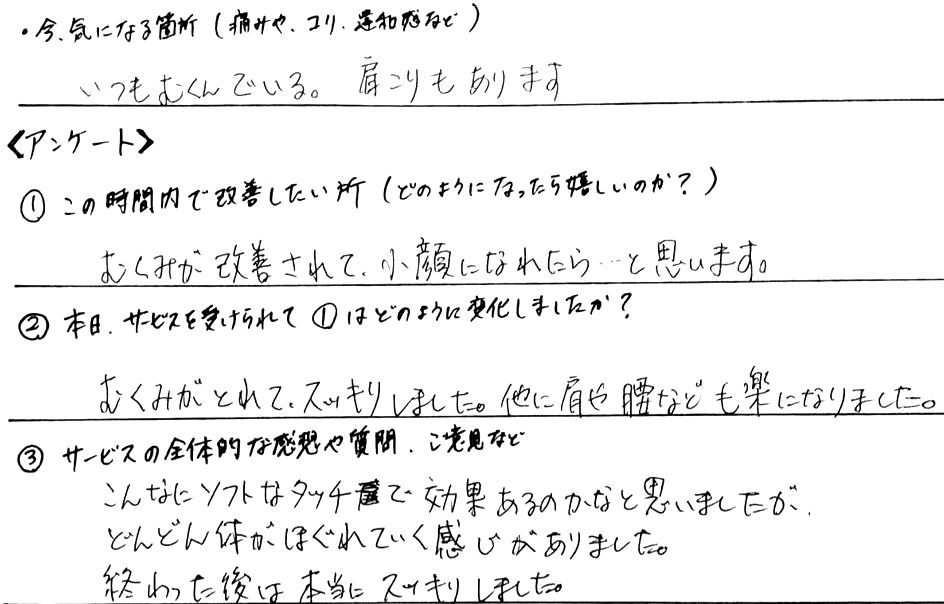 ・今、気になる箇所（痛みや、コリ、違和感など）
いつもむくんでいる。肩こりもあります
〈アンケート〉
① この時間内で改善したい所（どのようになったら嬉しいのか？）
むくみが改善されて、小顔になれたら…と思います。
② 本日、サービスを受けられて①はどのように変化しましたか？
むくみがとれて、スッキリしました。他に肩や腰なども楽になりました。
③ サービスの全体的な感想や質問、ご意見など
こんなにソフトなタッチで効果あるのかなと思いましたが、
どんどん体がほぐれていく感じがありました。
終わった後は本当にスッキリしました。